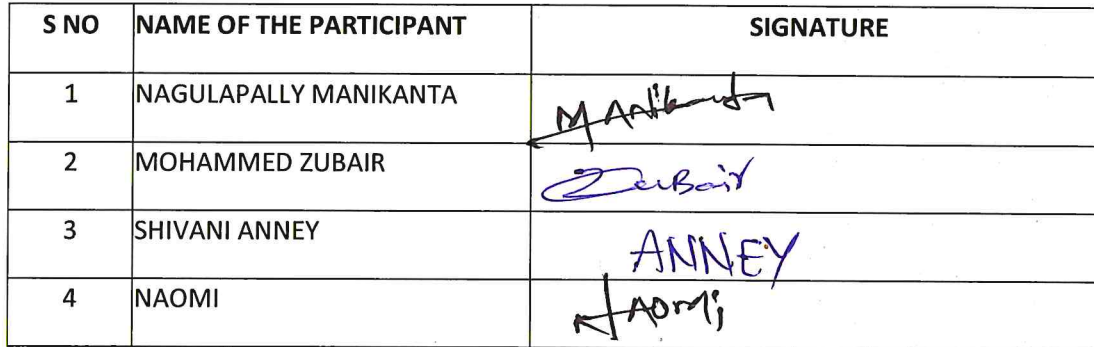 S NO NAME OF THE PARTICIPANT SIGNATURE
1 NAGULAPALLY MANIKANTA MANikanta
2 MOHAMMED ZUBAIR ZuBair
3 SHIVANI ANNEY ANNEY
4 NAOMI NAOMi